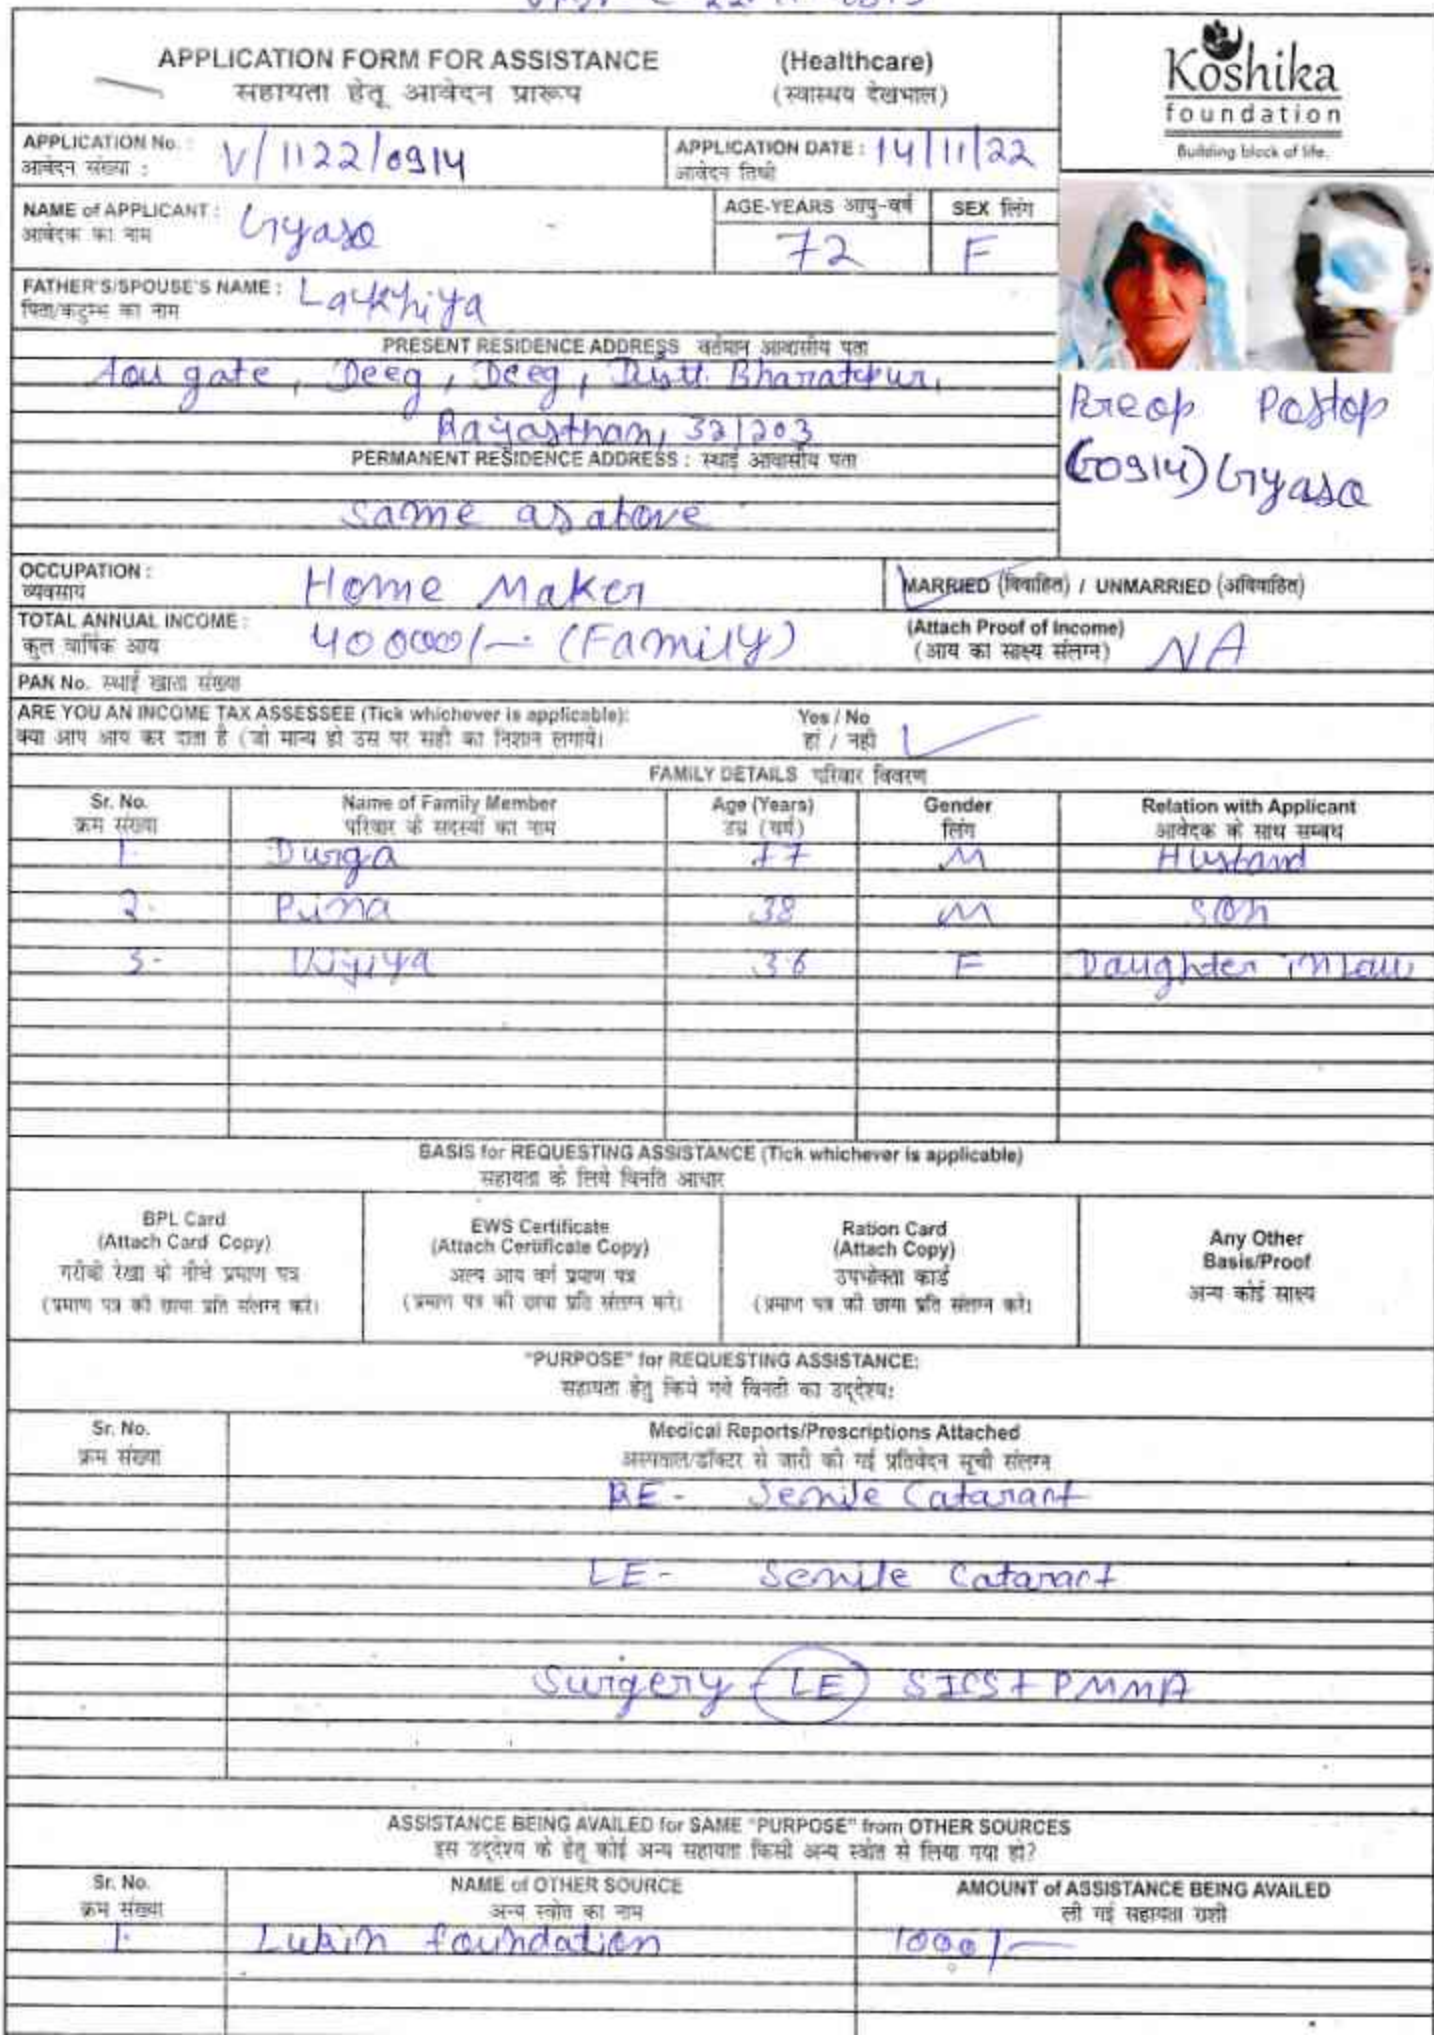 APPLICATION FORM FOR ASSISTANCE (Healthcare)
सहायता हेतू आवेदन प्रारूप (स्वास्थय देखभाल)
Koshika
foundation
Building block of life.
APPLICATION No. : V/1122/0914 APPLICATION DATE : 14/11/22
आवेदन संख्या : आवेदन तिथी
NAME of APPLICANT : Gyaso AGE-YEARS आयु-वर्ष SEX लिंग
आवेदक का नाम 72 F
FATHER'S/SPOUSE'S NAME : Lakhiya
पिता/कटुम्भ का नाम
PRESENT RESIDENCE ADDRESS वर्तमान आवासीय पता
gate, Deeg, Deeg, Distt. Bharatpur,
Rajasthan, 321203
PERMANENT RESIDENCE ADDRESS : स्थाई आवासीय पता
same as above
Preop Postop
(0914) Gyaso
OCCUPATION : Home Maker MARRIED (विवाहित) / UNMARRIED (अविवाहित)
व्यवसाय
TOTAL ANNUAL INCOME : 40000/- (Family) (Attach Proof of Income) NA
कुल वार्षिक आय (आय का साक्ष्य संलग्न)
PAN No. स्थाई खाता संख्या
ARE YOU AN INCOME TAX ASSESSEE (Tick whichever is applicable): Yes / No
क्या आप आय कर दाता है (जो मान्य हो उस पर सही का निशान लगाये। हां / नहीं
FAMILY DETAILS परिवार विवरण
Sr. No. Name of Family Member Age (Years) Gender Relation with Applicant
क्रम संख्या परिवार के सदस्यों का नाम उम्र (वर्ष) लिंग आवेदक के साथ सम्बध
1. Durga 77 M Husband
2. 38 M son
3- 36 F Daughter in law
BASIS for REQUESTING ASSISTANCE (Tick whichever is applicable)
सहायता के लिये विनति आधार
BPL Card
(Attach Card Copy)
गरीबी रेखा के नीचे प्रमाण पत्र
(प्रमाण पत्र की छाया प्रति संलग्न करे।
EWS Certificate
(Attach Certificate Copy)
अल्प आय वर्ग प्रमाण पत्र
(प्रमाण पत्र की छाया प्रति संलग्न करे।
Ration Card
(Attach Copy)
उपभोक्ता कार्ड
(प्रमाण पत्र की छाया प्रति संलग्न करे।
Any Other
Basis/Proof
अन्य कोई साक्ष्य
"PURPOSE" for REQUESTING ASSISTANCE:
सहायता हेतु किये गये विनती का उद्देश्य:
Sr. No. Medical Reports/Prescriptions Attached
क्रम संख्या अस्पताल/डॉक्टर से जारी की गई प्रतिवेदन सूची संलग्न
RE- Senile Cataract
LE- Senile Cataract
Surgery - LE SICS + PMMA
ASSISTANCE BEING AVAILED for SAME "PURPOSE" from OTHER SOURCES
इस उद्देश्य के हेतू कोई अन्य सहायता किसी अन्य स्त्रोत से लिया गया हो?
Sr. No. NAME of OTHER SOURCE AMOUNT of ASSISTANCE BEING AVAILED
क्रम संख्या अन्य स्त्रोत का नाम ली गई सहायता राशी
1. foundation 1000/-